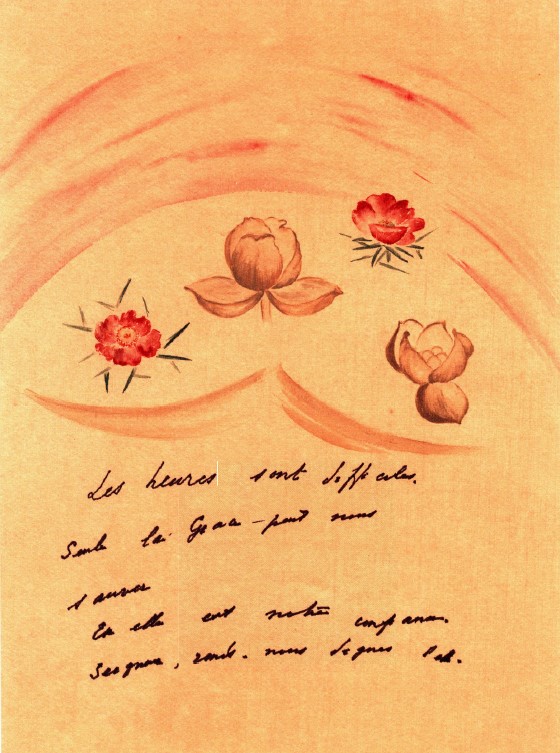 Les heures sont difficiles.
Seule la Grace peut nous
sauver
En elle est notre confiance.
Seigneur, rends-nous dignes d'elle.